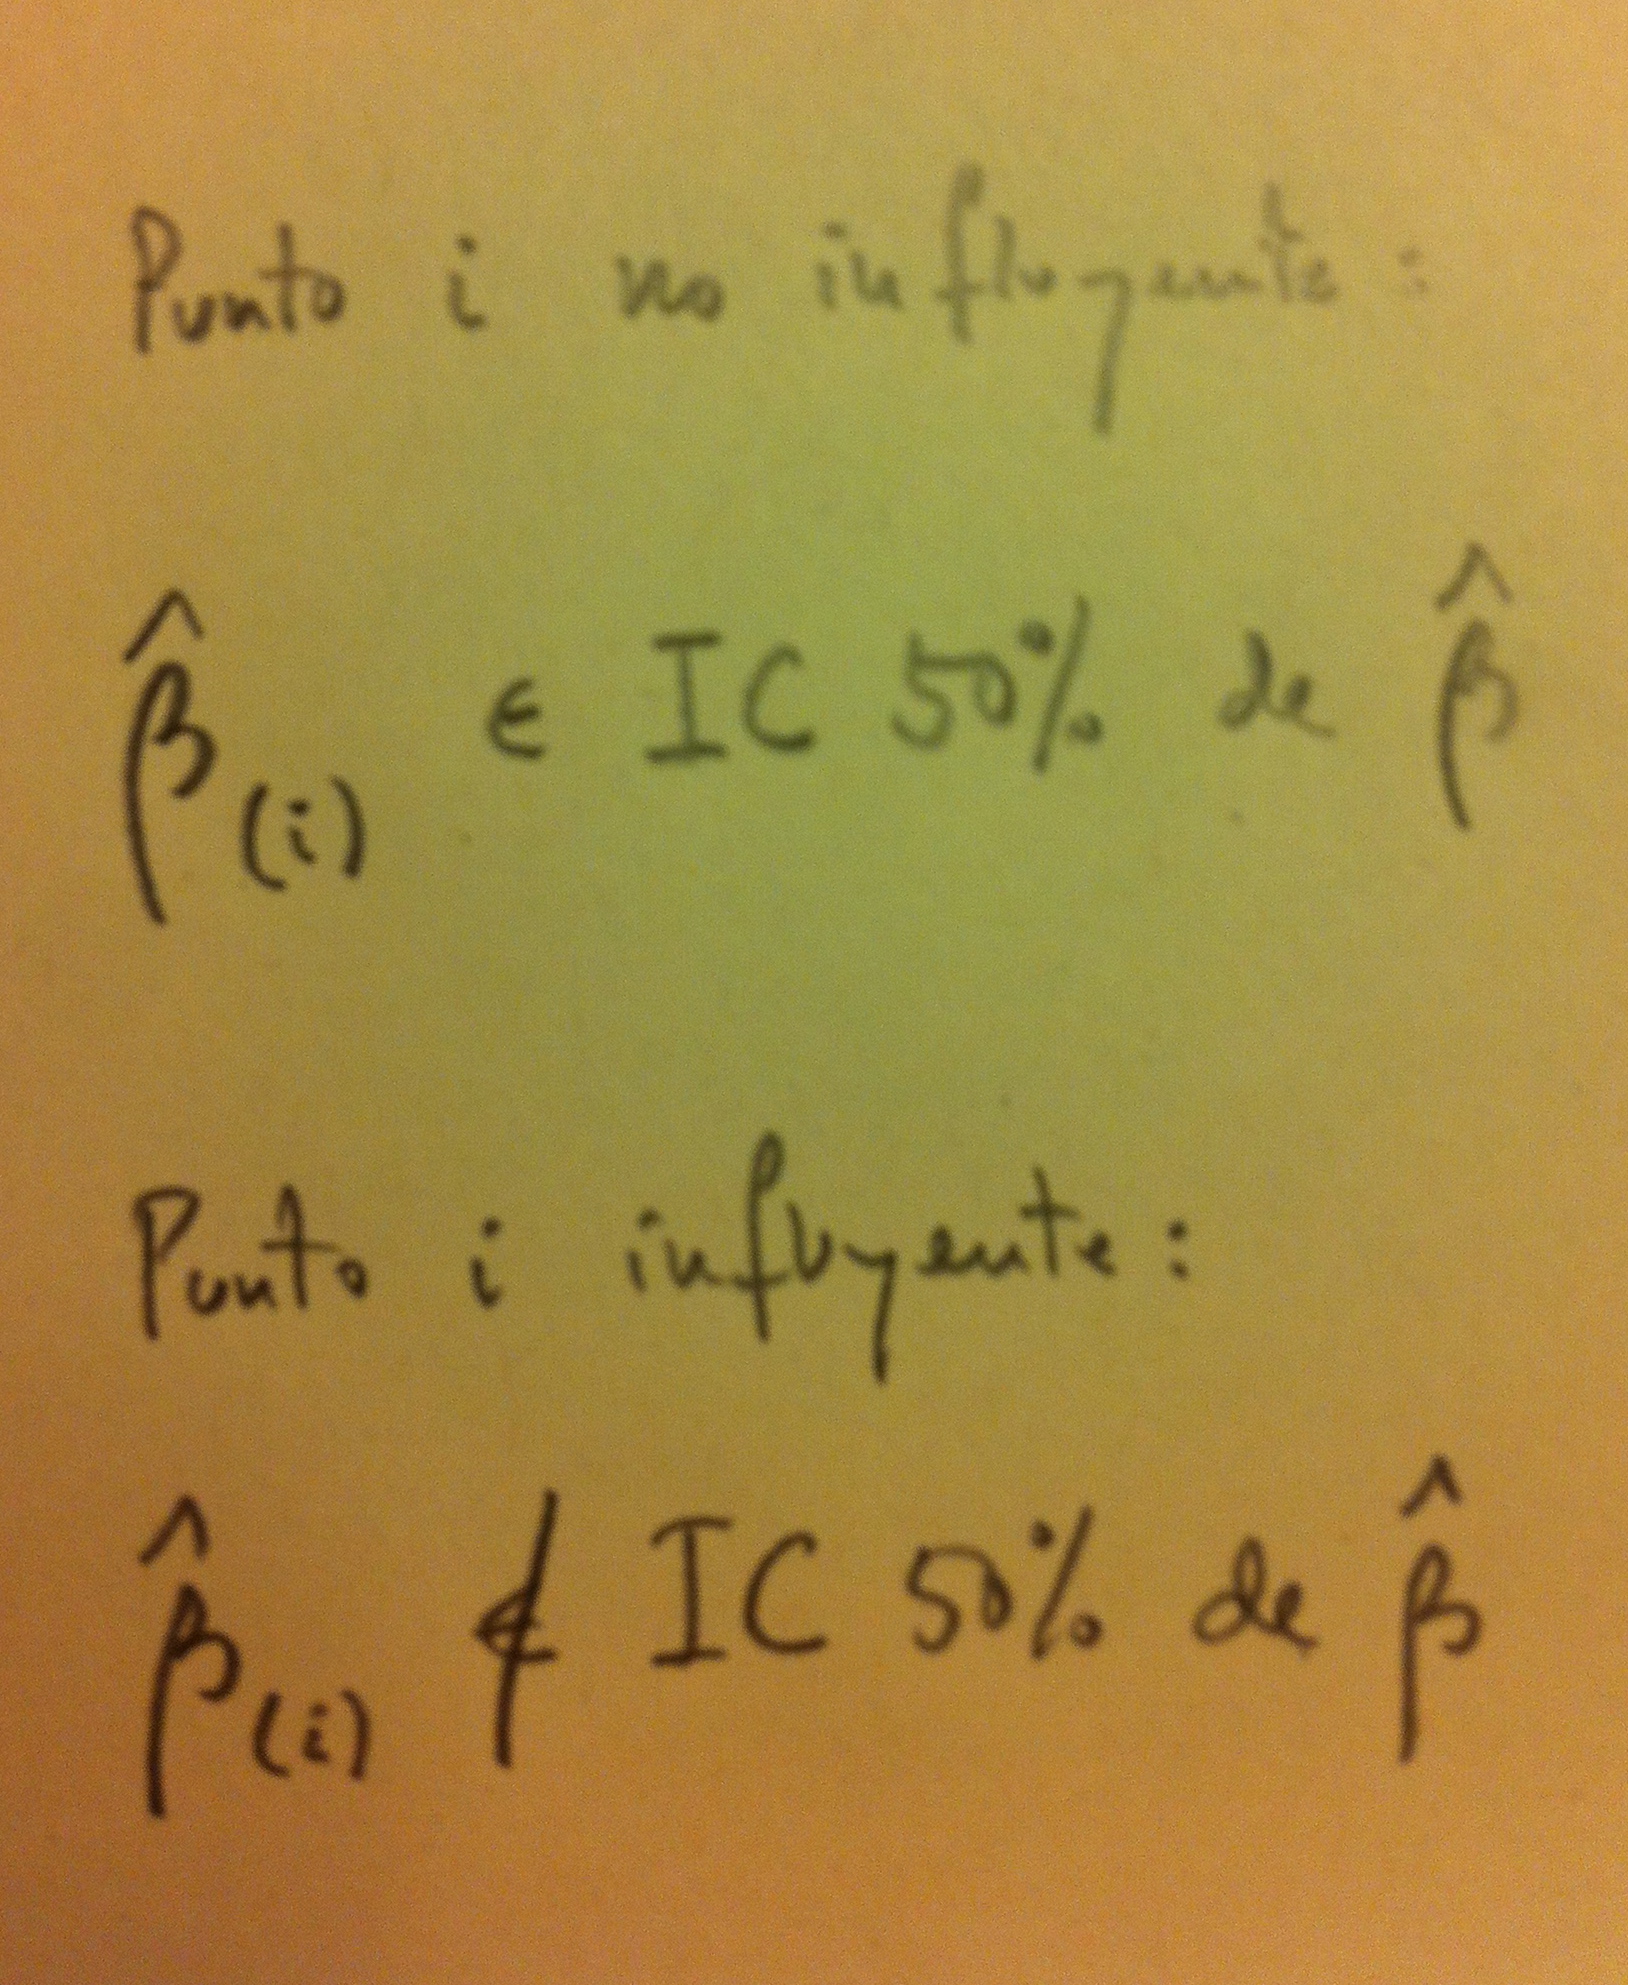 Punto i no influyente:
β̂(i) ∈ IC 50% de β̂
Punto i influyente:
β̂(i) ∉ IC 50% de β̂